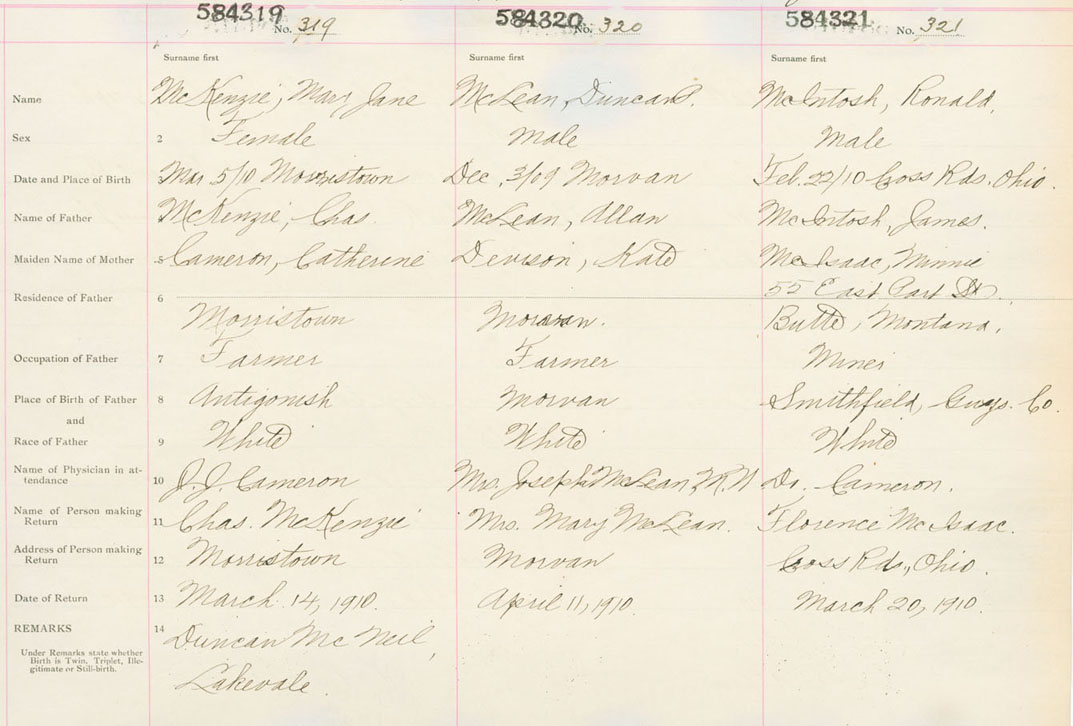 584319 No. 319 584320 No. 320 584321 No. 321
Surname first Surname first Surname first
Name McKenzie, Mary Jane McLean, Duncan P. McIntosh, Ronald.
Sex 2 Female Male Male
Date and Place of Birth Mar 5/10 Morristown Dec. 3/09 Morvan Feb. 22/10 Cross Rds. Ohio.
Name of Father McKenzie, Chas. McLean, Allan McIntosh, James.
Maiden Name of Mother 5 Cameron, Catherine Devison, Kate McIsaac, Minnie
Residence of Father 6 55 East St.
Morristown Morvan. Butte, Montana.
Occupation of Father 7 Farmer Farmer Miner
Place of Birth of Father 8 Antigonish Morvan Smithfield, Guys. Co.
and
Race of Father 9 White White White
Name of Physician in at-
tendance 10 J.J. Cameron Mrs. Joseph McLean, M.W Dr. Cameron.
Name of Person making
Return 11 Chas. McKenzie Mrs. Mary McLean. Florence McIsaac.
Address of Person making
Return 12 Morristown Morvan Cross Rds., Ohio.
Date of Return 13 March 14, 1910. April 11, 1910. March 20, 1910.
REMARKS 14 Duncan McNeil,
Under Remarks state whether
Birth is Twin, Triplet, Ille-
gitimate or Still-birth.
Lakevale.